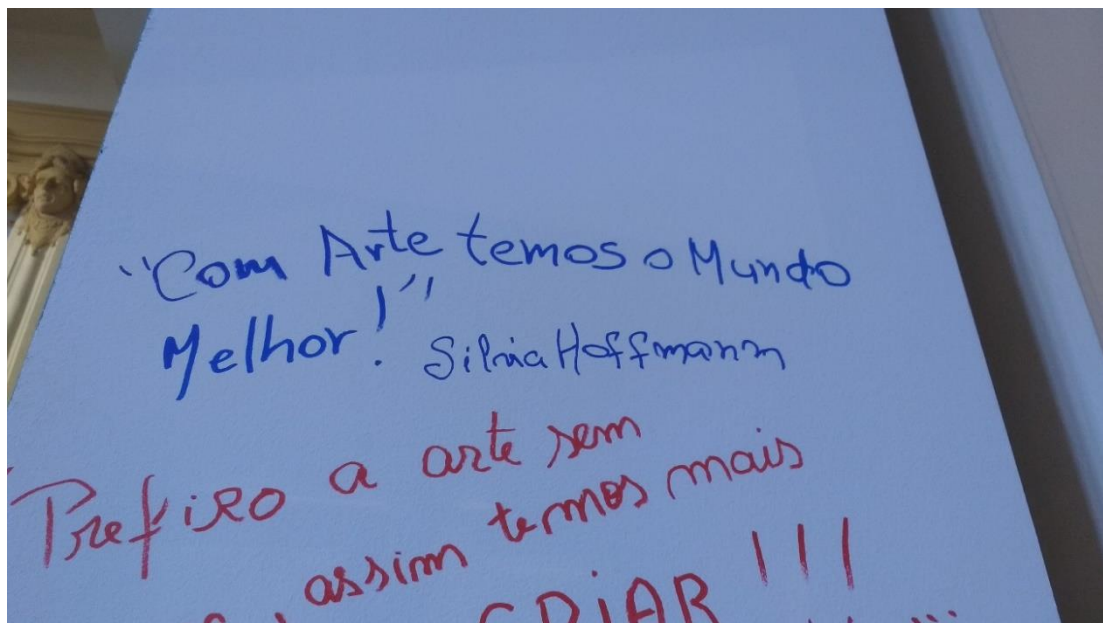 "Com Arte temos o Mundo
Melhor!" Silvia Hoffmann
Prefiro a arte sem
assim temos mais
CRiAR !!!